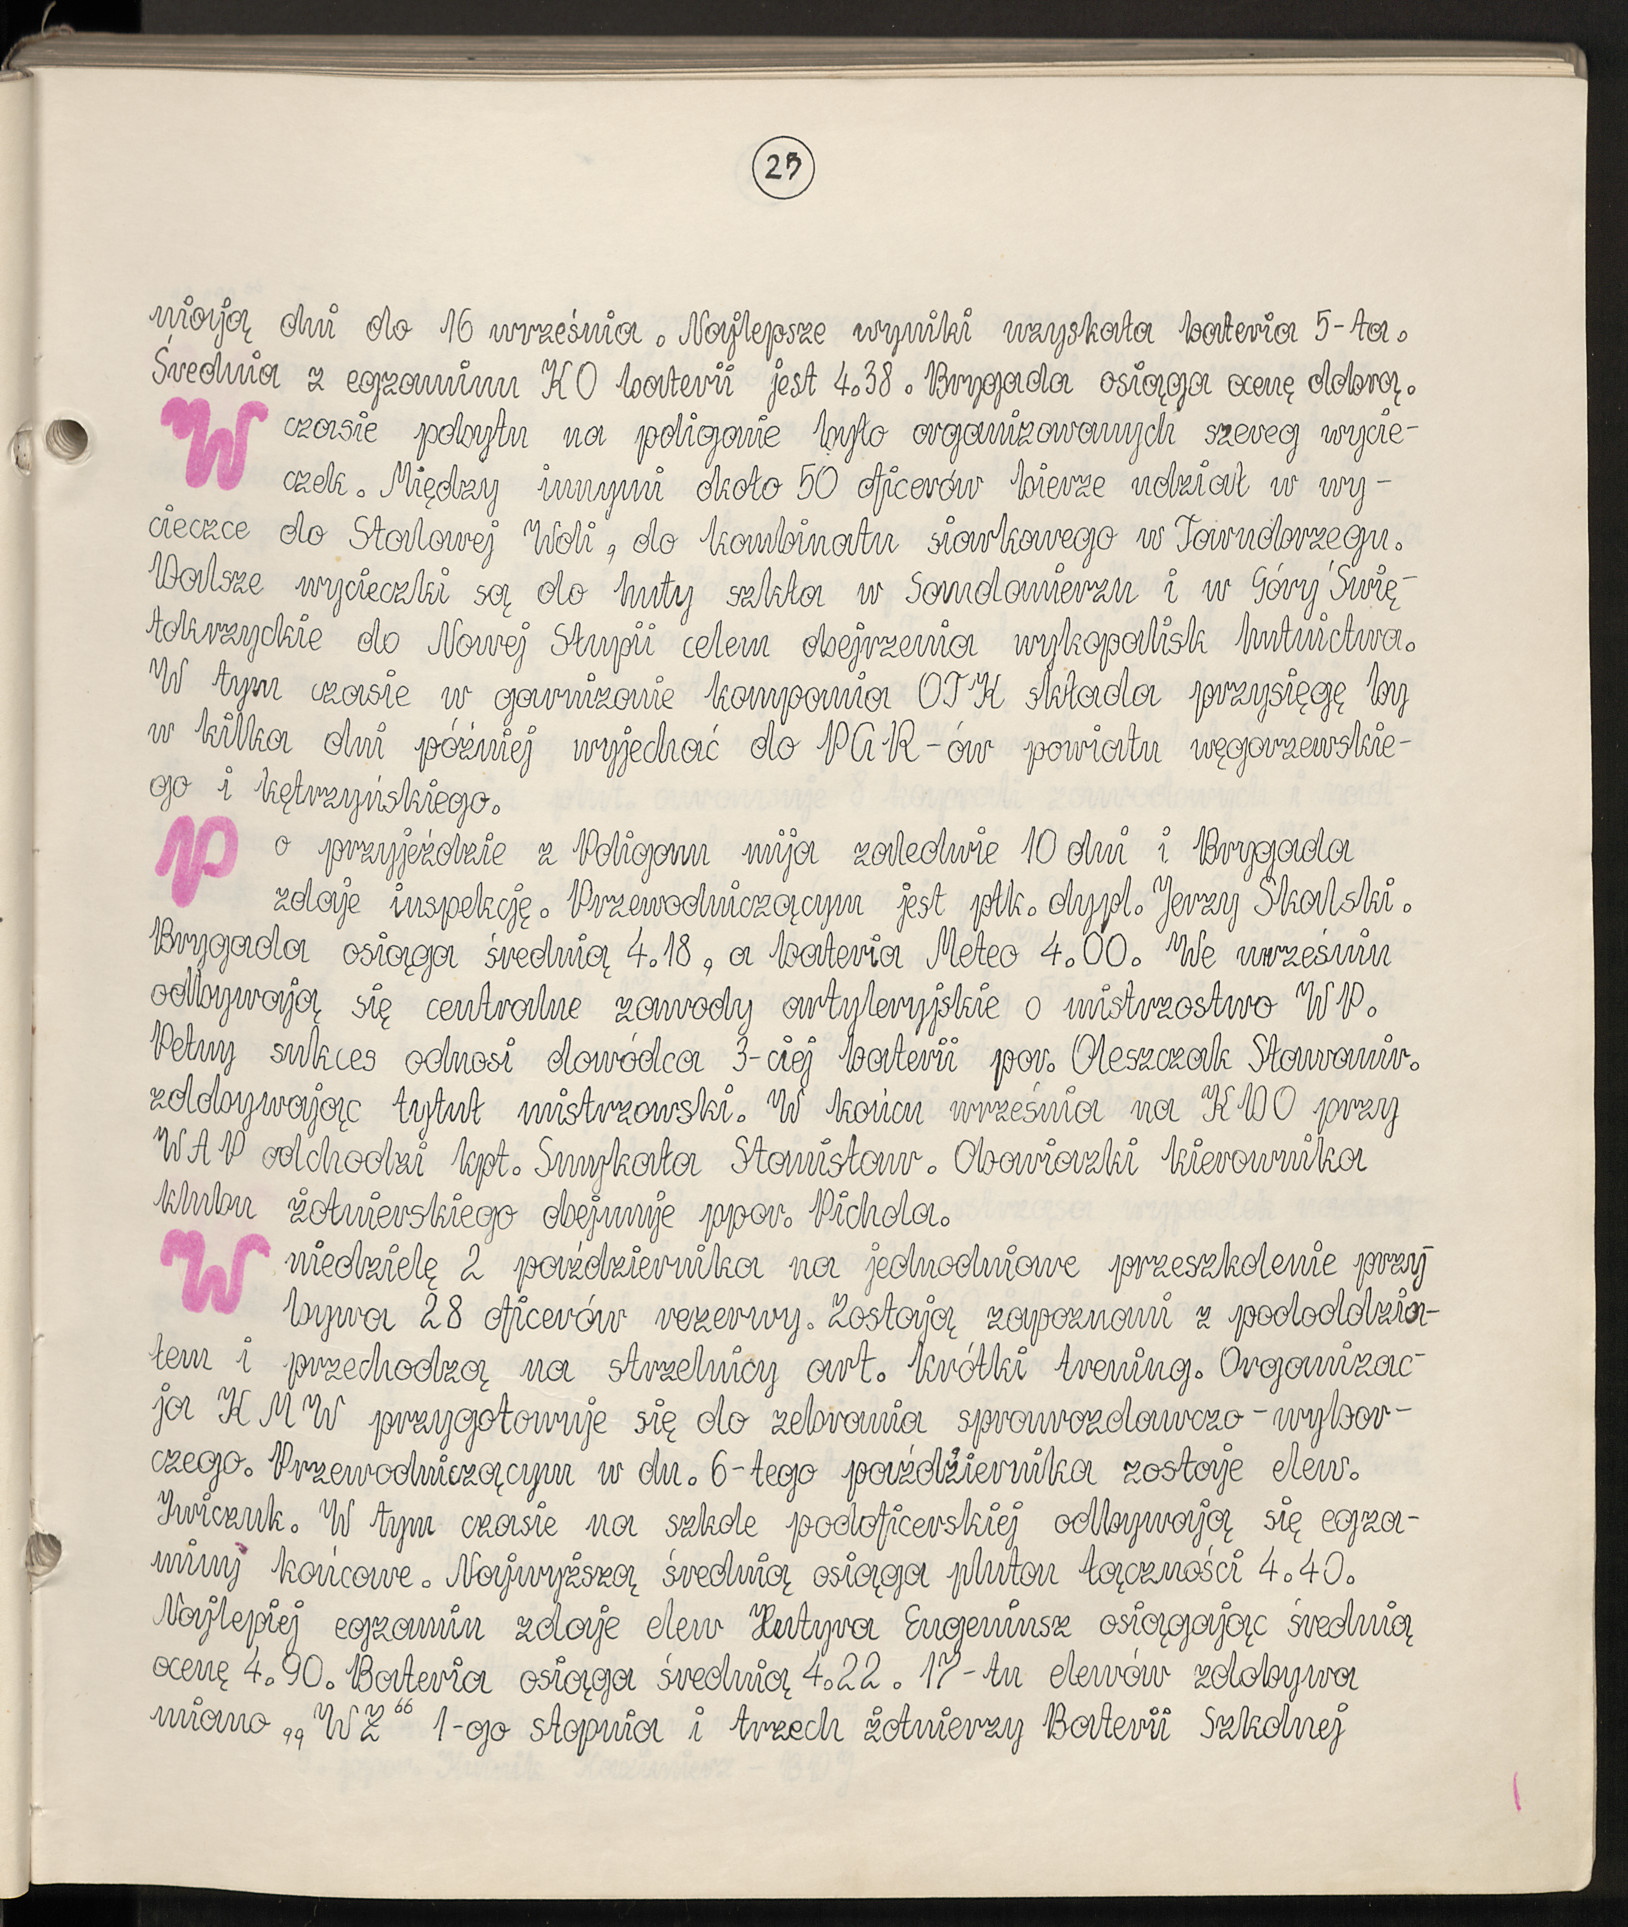 25
niają dni do 16 września. Najlepsze wyniki uzyskała bateria 5-ta.
Średnia z egzaminu KO baterii jest 4.38. Brygada osiąga ocenę dobrą.
W czasie pobytu na poligonie było organizowanych szereg wycie-
czek. Między innymi około 50 oficerów bierze udział w wy-
cieczce do Stalowej Woli, do kombinatu siarkowego w Tarnobrzegu.
Dalsze wycieczki są do huty szkła w Sandomierzu i w Góry Świę-
tokrzyckie do Nowej Słupii celem obejrzenia wykopalisk hutnictwa.
W tym czasie w garnizonie kompania OTK składa przysięgę by
w kilka dni później wyjechać do PGR-ów powiatu węgorzewskie-
go i kętrzyńskiego.
Po przyjeździe z Poligonu mija zaledwie 10 dni i Brygada
zdaje inspekcję. Przewodniczącym jest płk. dypl. Jerzy Skalski.
Brygada osiąga średnią 4.18, a bateria Meteo 4.00. We wrześniu
odbywają się centralne zawody artyleryjskie o mistrzostwo WP.
Pełny sukces odnosi dowódca 3-ciej baterii por. Oleszczak Sławomir.
zdobywając tytuł mistrzowski. W końcu września na KDO przy
WAP odchodzi kpt. Smykała Stanisław. Obowiązki kierownika
klubu żołnierskiego obejmuje ppor. Pichola.
W niedzielę 2 października na jednodniowe przeszkolenie przy
bywa 28 oficerów rezerwy. Zostają zapoznani z pododdzia-
łem i przechodzą na strzelnicy art. krótki trening. Organizac-
ja KMW przygotowuje się do zebrania sprawozdawczo-wybor-
czego. Przewodniczącym w dn. 6-tego października zostaje elew.
Iwiczuk. W tym czasie na szkole podoficerskiej odbywają się egza-
miny końcowe. Najwyższą średnią osiąga pluton łączności 4.40.
Najlepiej egzamin zdaje elew Hutyra Eugeniusz osiągając średnią
ocenę 4.90. Bateria osiąga średnią 4.22. 17-tu elewów zdobywa
miano „WŻ“ 1-go stopnia i trzech żołnierzy Baterii Szkolnej